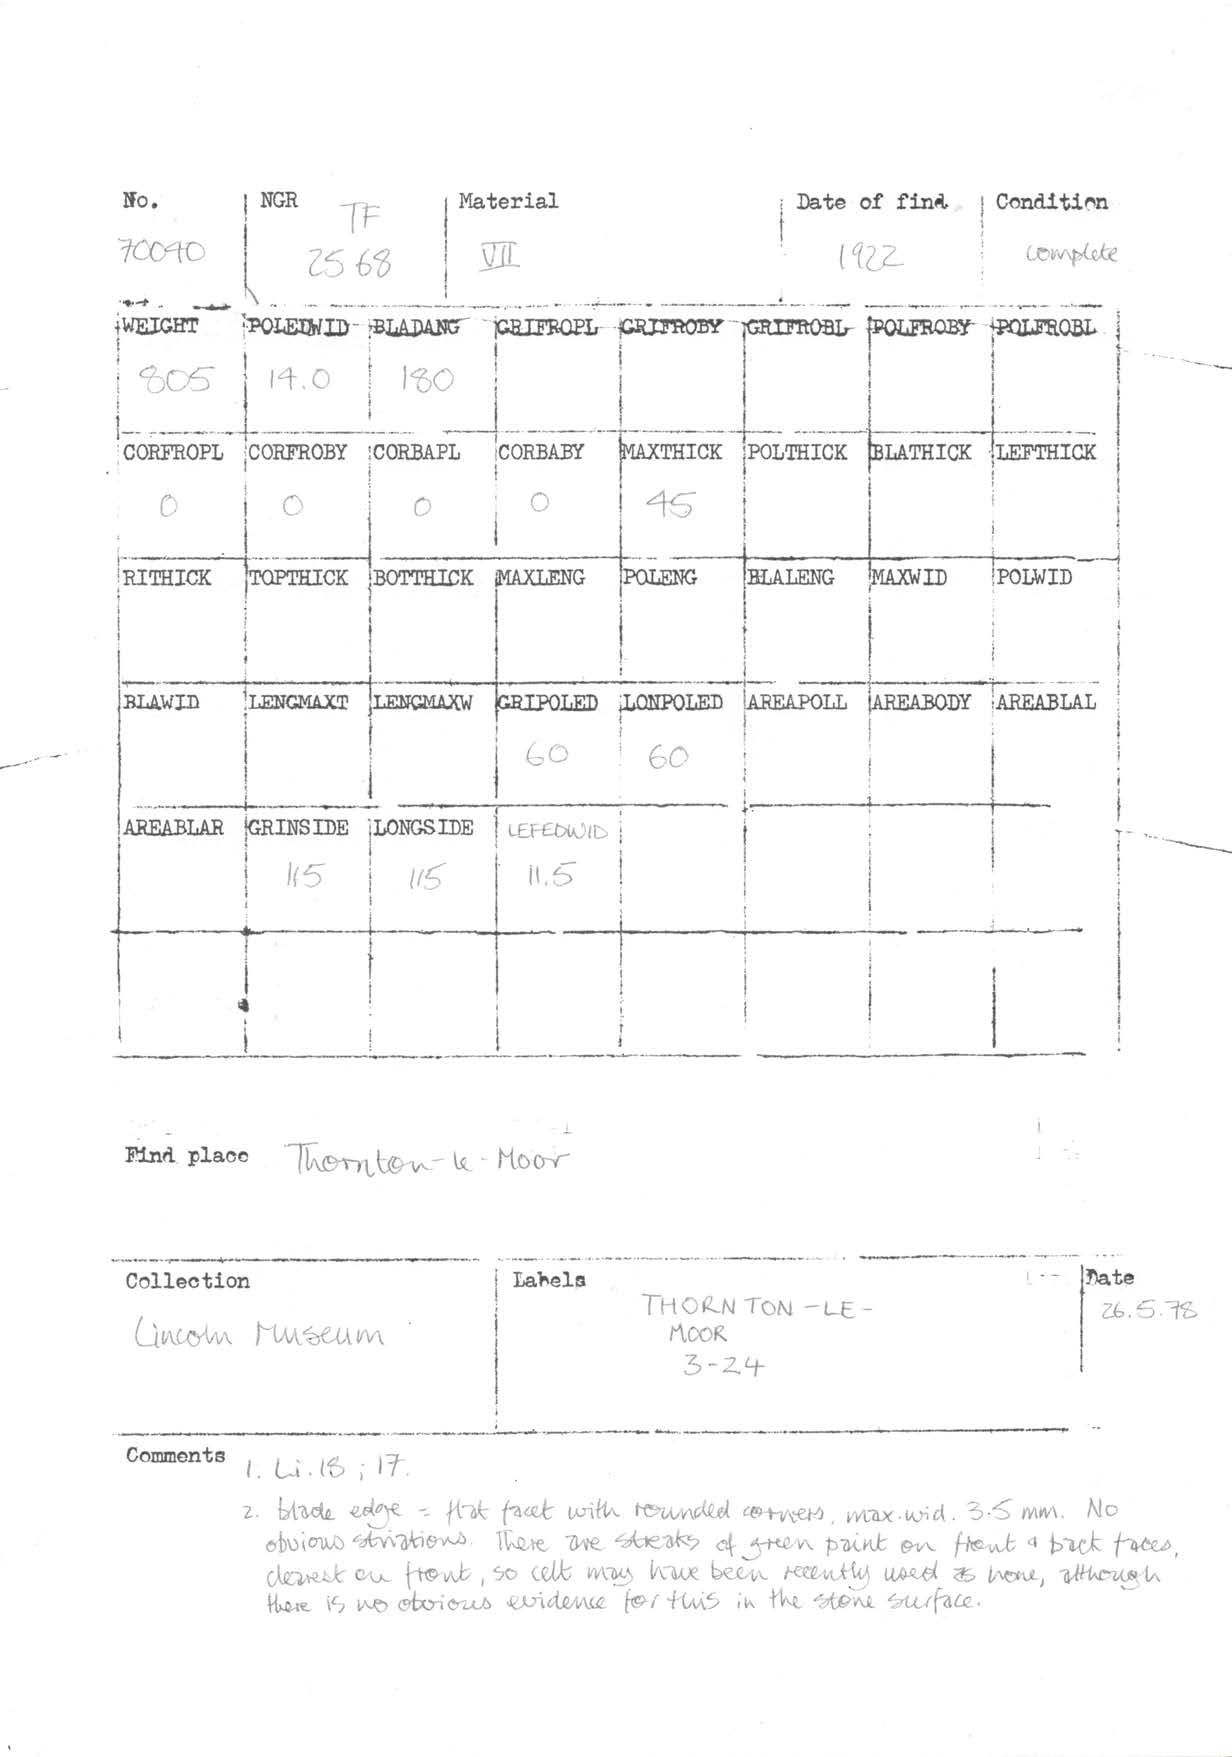 No. NGR Material Date of find Condition
70040 TF 2568 VII 1922 complete
WEIGHT POLEDWID BLADANG GRIFROPL GRIFROBY GRIFROBL POLFROBY POLFROBL
805 14.0 180
CORFROPL CORFROBY CORBAPL CORBABY MAXTHICK POLTHICK BLATHICK LEFTHICK
0 0 0 0 45
RITHICK TOPTHICK BOTTHICK MAXLENG POLENG BLALENG MAXWID POLWID
BLAWID LENGMAXT LENGMAXW GRIPOLED LONPOLED AREAPOLL AREABODY AREABLAL
60 60
AREABLAR GRINSIDE LONGSIDE LEFEDWID
115 115 11.5
Find place Thornton-le-Moor
Collection Labels Date
Lincoln Museum
THORNTON-LE-
MOOR
3-24
26.5.78
Comments 1. Li.18; 17.
2. blade edge = flat facet with rounded corners, max.wid. 3.5 mm. No
obvious striations. There are streaks of green paint on front & back faces,
clearest on front, so celt may have been recently used as hone, although
there is no obvious evidence for this in the stone surface.